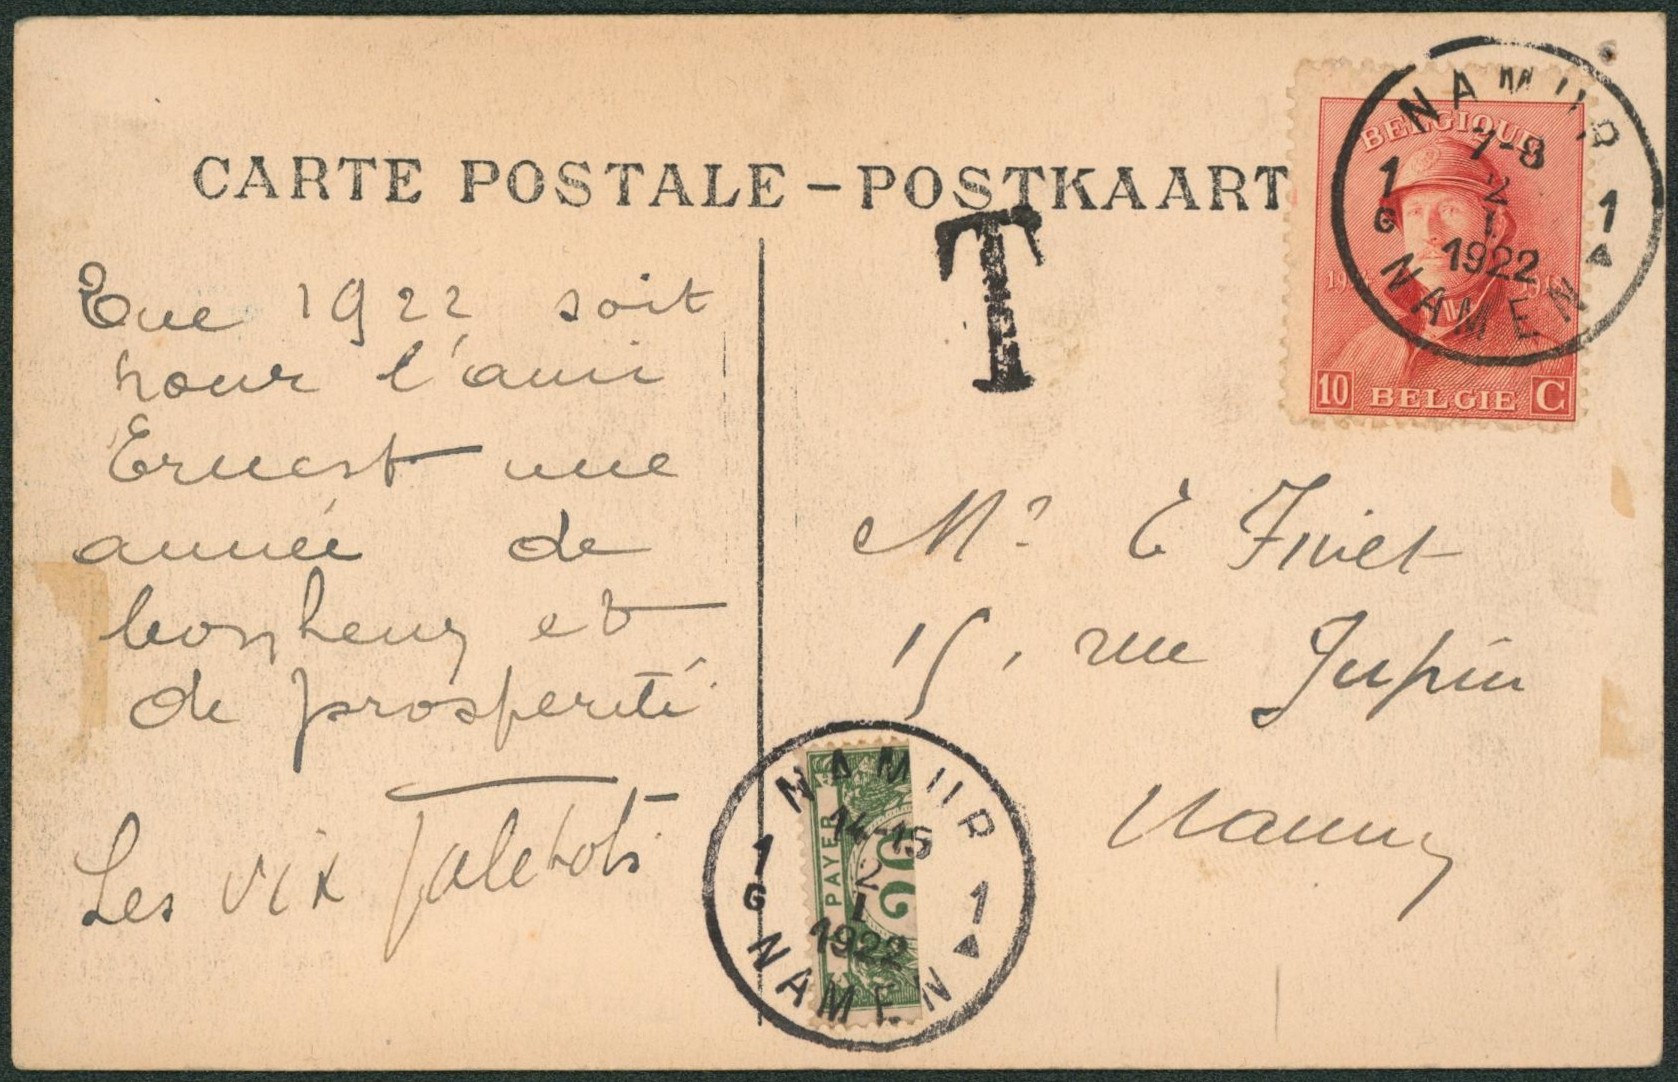 CARTE POSTALE – POSTKAART
Que 1922 soit
pour l'ami
Ernest une
année de
bonheur et
de prosperité
Les vix Talebots
T
BELGIQUE
10 BELGIE C
NAMUR
7-8
2
I
1922
1 G
1
NAMEN
Mr E Finet
15, rue Jupin
Namur
NAMUR
14-15
2
I
1922
1 G
1
NAMEN
PAYER
20